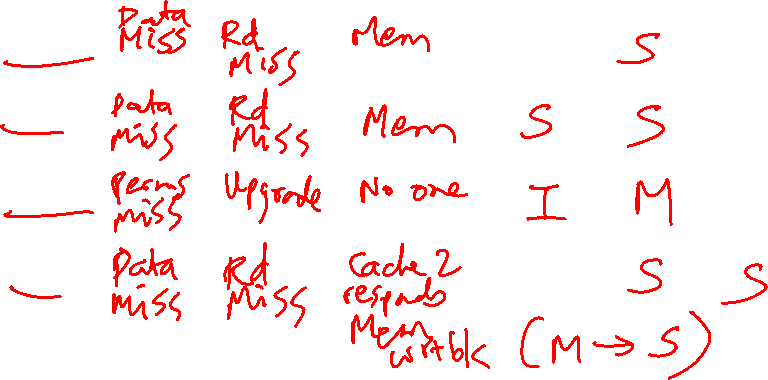 Data Miss Rd Miss Mem S
Data miss Rd Miss Mem S S
Perms miss Upgrade No one I M
Data miss Rd Miss Cache 2 responds S S
Mem wrtbk (M → S)